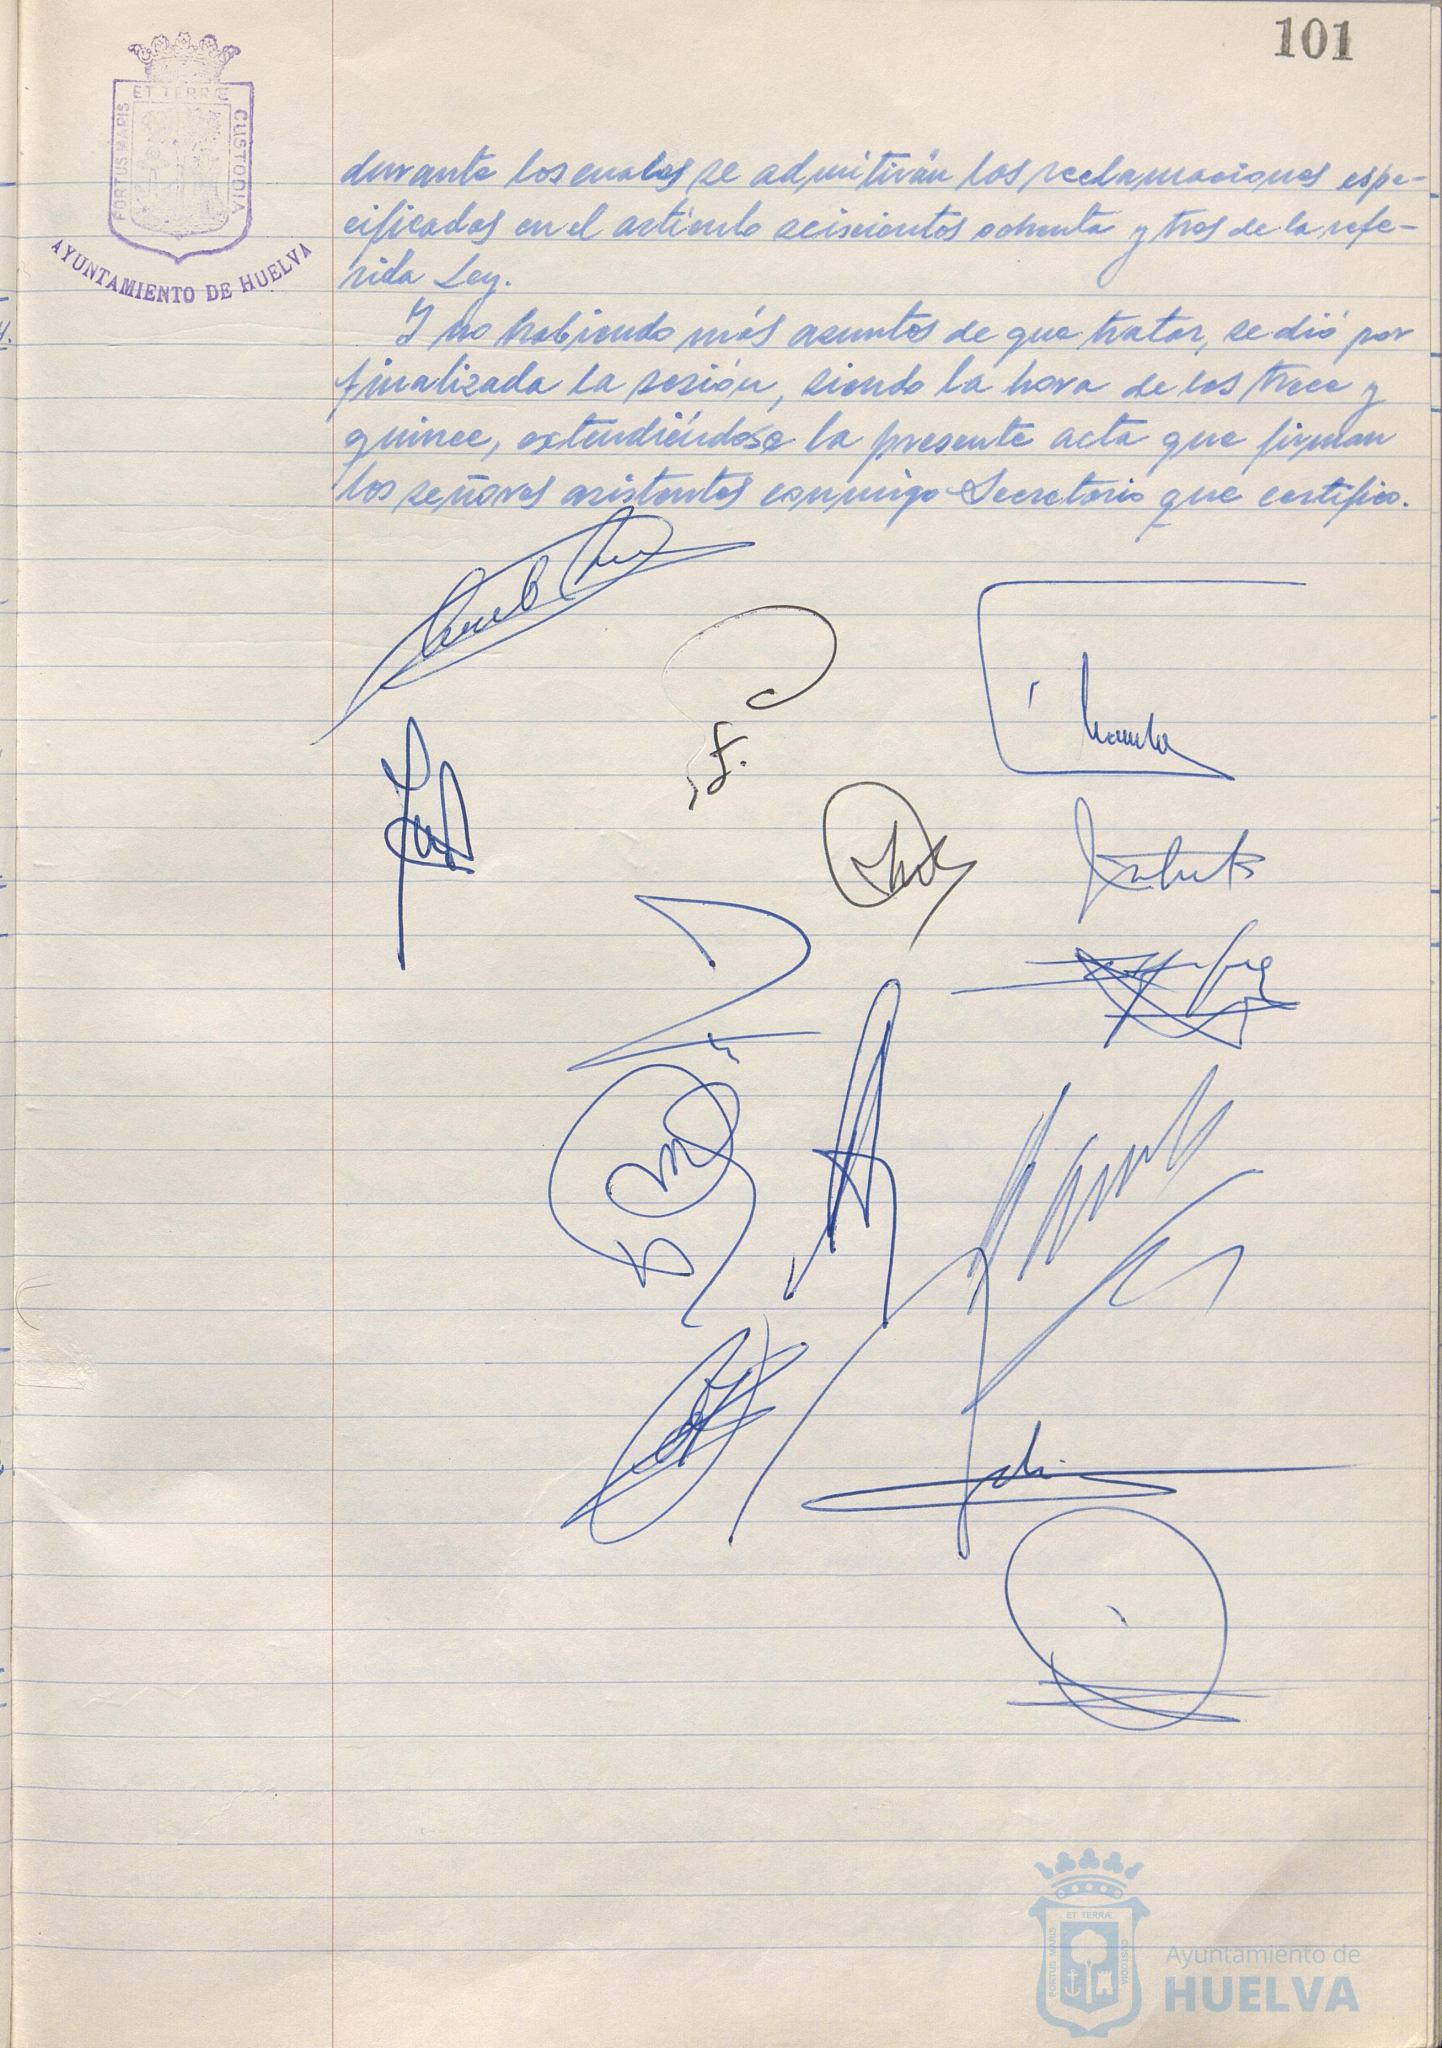 101
ET TERRÆ
PORTUS MARIS
CUSTODIA
AYUNTAMIENTO DE HUELVA
durante los cuales se admitirán las reclamaciones espe-
cificadas en el artículo seiscientos ochenta y tres de la refe-
rida Ley.
Y no habiendo más asuntos de que tratar, se dió por
finalizada la sesión, siendo la hora de las trece y
quince, extendiéndose la presente acta que firman
los señores asistentes conmigo Secretario que certifico.
ET TERRÆ
PORTUS MARIS
CUSTODIA
Ayuntamiento de
HUELVA